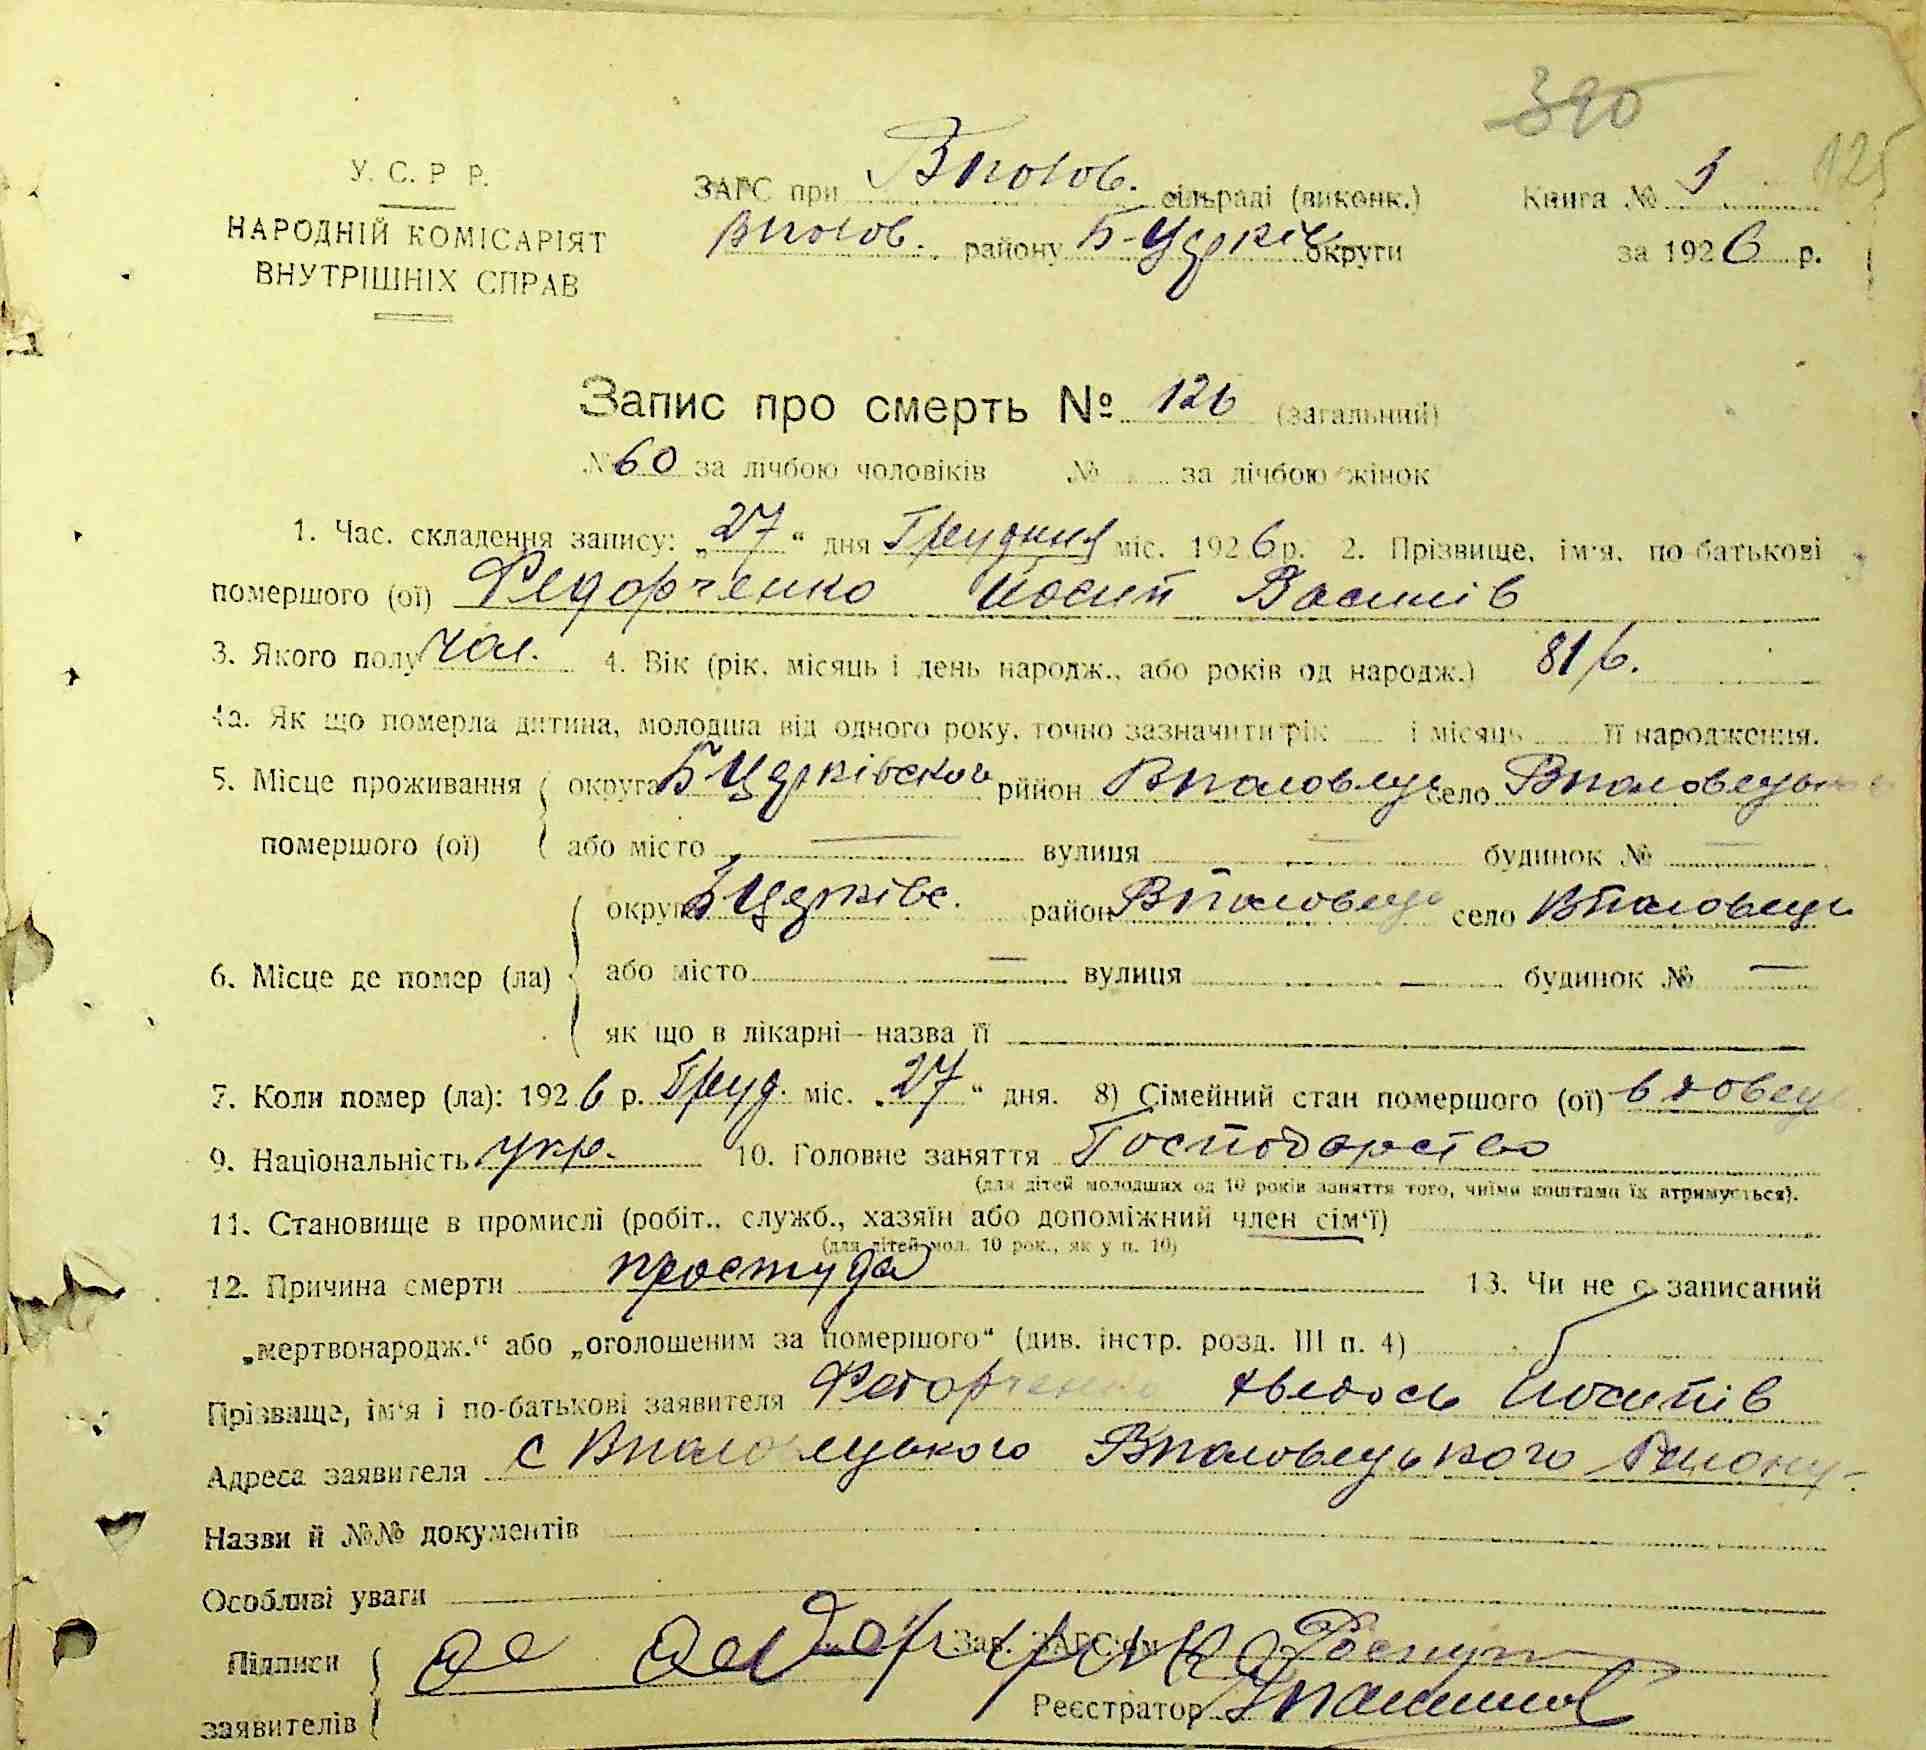 390
125
У. С. Р. Р.
НАРОДНІЙ КОМІСАРІЯТ
ВНУТРІШНІХ СПРАВ
ЗАГС при Вполов. сільраді (виконк.) Книга №
Вполов. району Б-Церків округи за 1926 р.
Запис про смерть № 126 (загальний)
№ 60 за лічбою чоловіків № за лічбою жінок
1. Час. складення запису: „27“ дня Грудня міс. 1926 р. 2. Прізвище, ім'я, по-батькові
помершого (ої) Федорченко Йосип Василів
3. Якого полу чол. 4. Вік (рік, місяць і день народж., або років од народж.) 81 р.
4а. Як що померла дитина, молодша від одного року, точно зазначити рік і місяць її народження.
5. Місце проживання округа БЦерківської рййон Вполовец село
помершого (ої) або місто — вулиця — будинок № —
округа БЦерківс. район Вполовец село Вполовець
6. Місце де помер (ла) або місто — вулиця — будинок № —
як що в лікарні—назва її
7. Коли помер (ла): 1926 р. Груд. міс. „27“ дня. 8) Сімейний стан помершого (ої) вдовец
9. Національність укр. 10. Головне заняття Господарство
(для дітей молодших од 10 років заняття того, чиїми коштами їх втримується).
11. Становище в промислі (робіт., служб., хазяїн або допоміжний член сім'ї)
(для дітей мол. 10 рок., як у п. 10)
12. Причина смерти простуда 13. Чи не є записаний
„мертвонародж.“ або „оголошеним за помершого“ (див. інстр. розд. III п. 4)
Прізвище, ім'я і по-батькові заявителя Федорченко Йосипів
Адреса заявителя с Вполовецького Вполовецького Району
Назви й №№ документів
Особливі уваги
Підписи Зав. ЗАГС'ом
заявителів Реєстратор